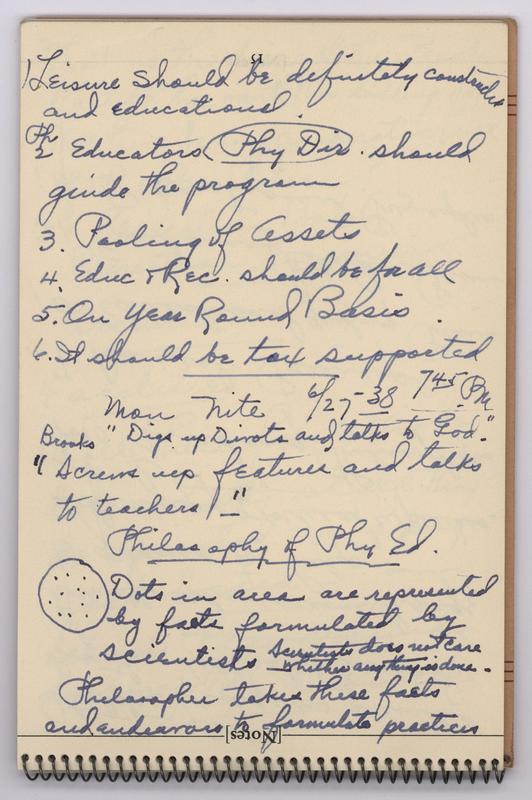 15
1) Leisure should be definitely constructive
and educational.
Ph
2 Educators (Phy Dir). should
guide the program
3. Pooling of assets
4. Educ & Rec. should be for all
5. On Year Round Basis.
6. It should be tax supported
Mon Nite 6/27-38 7 45 PM
Brooks " Digs up Divots and talks to God."
"Screws up features and talks
to teachers!"
Philosophy of Phy Ed.
Dots in area are represented
by facts formulated by
scientists Scientists does not care
whether anything is done.
Philosopher takes these facts
and endeavors to formulate practices
[Notes]